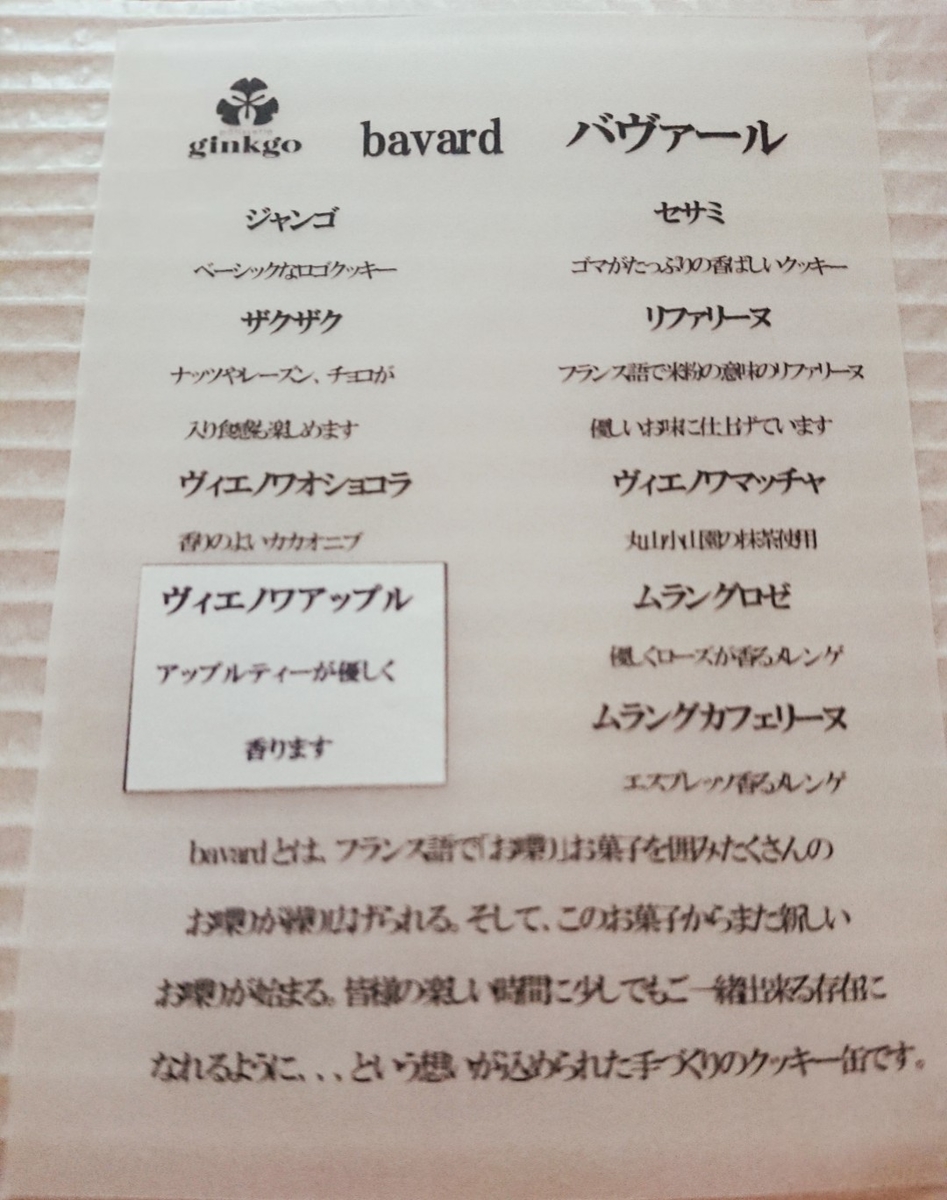 ginkgo
bavard バヴァール
ジャンゴ
ベーシックなロゴクッキー
ザクザク
ナッツやレーズン、チョコが
入り食感も楽しめます
ヴィエノワオショコラ
香りのよいカカオニブ
ヴィエノワアップル
アップルティーが優しく
香ります
セサミ
ゴマがたっぷりの香ばしいクッキー
リファリーヌ
フランス語で米粉の意味のリファリーヌ
優しいお味に仕上げています
ヴィエノワマッチャ
丸山小山園の抹茶使用
ムラングロゼ
優しくローズが香るメレンゲ
ムラングカフェリーヌ
エスプレッソ香るメレンゲ
bavardとは、フランス語で「お喋り」お菓子を囲みたくさんの
お喋りが繰り広げられる。そして、このお菓子からまた新しい
お喋りが始まる。皆様の楽しい時間に少しでもご一緒出来る存在に
なれるように、、、という想いが込められた手づくりのクッキー缶です。